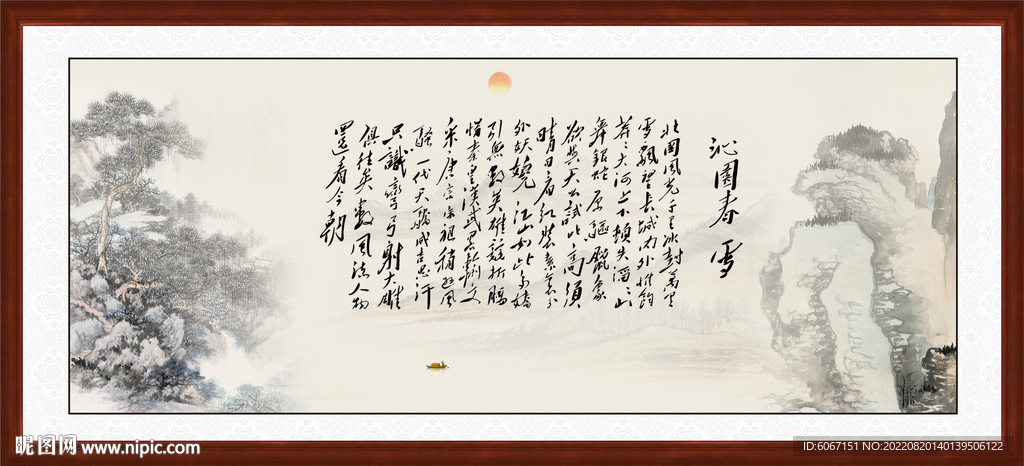 沁園春 雪
北國風光千里冰封萬里
雪飄望長城内外惟餘
莽莽大河上下頓失滔滔山
舞銀蛇原驅臘象
欲與天公試比高須
晴日看紅裝素裹分
外妖嬈江山如此多嬌
引無數英雄競折腰
惜秦皇漢武略輸文
采唐宗宋祖稍遜風
騷一代天驕成吉思汗
只識彎弓射大雕
俱往矣數風流人物
還看今朝
昵图网 www.nipic.com
ID:6067151 NO:20220820140139506122